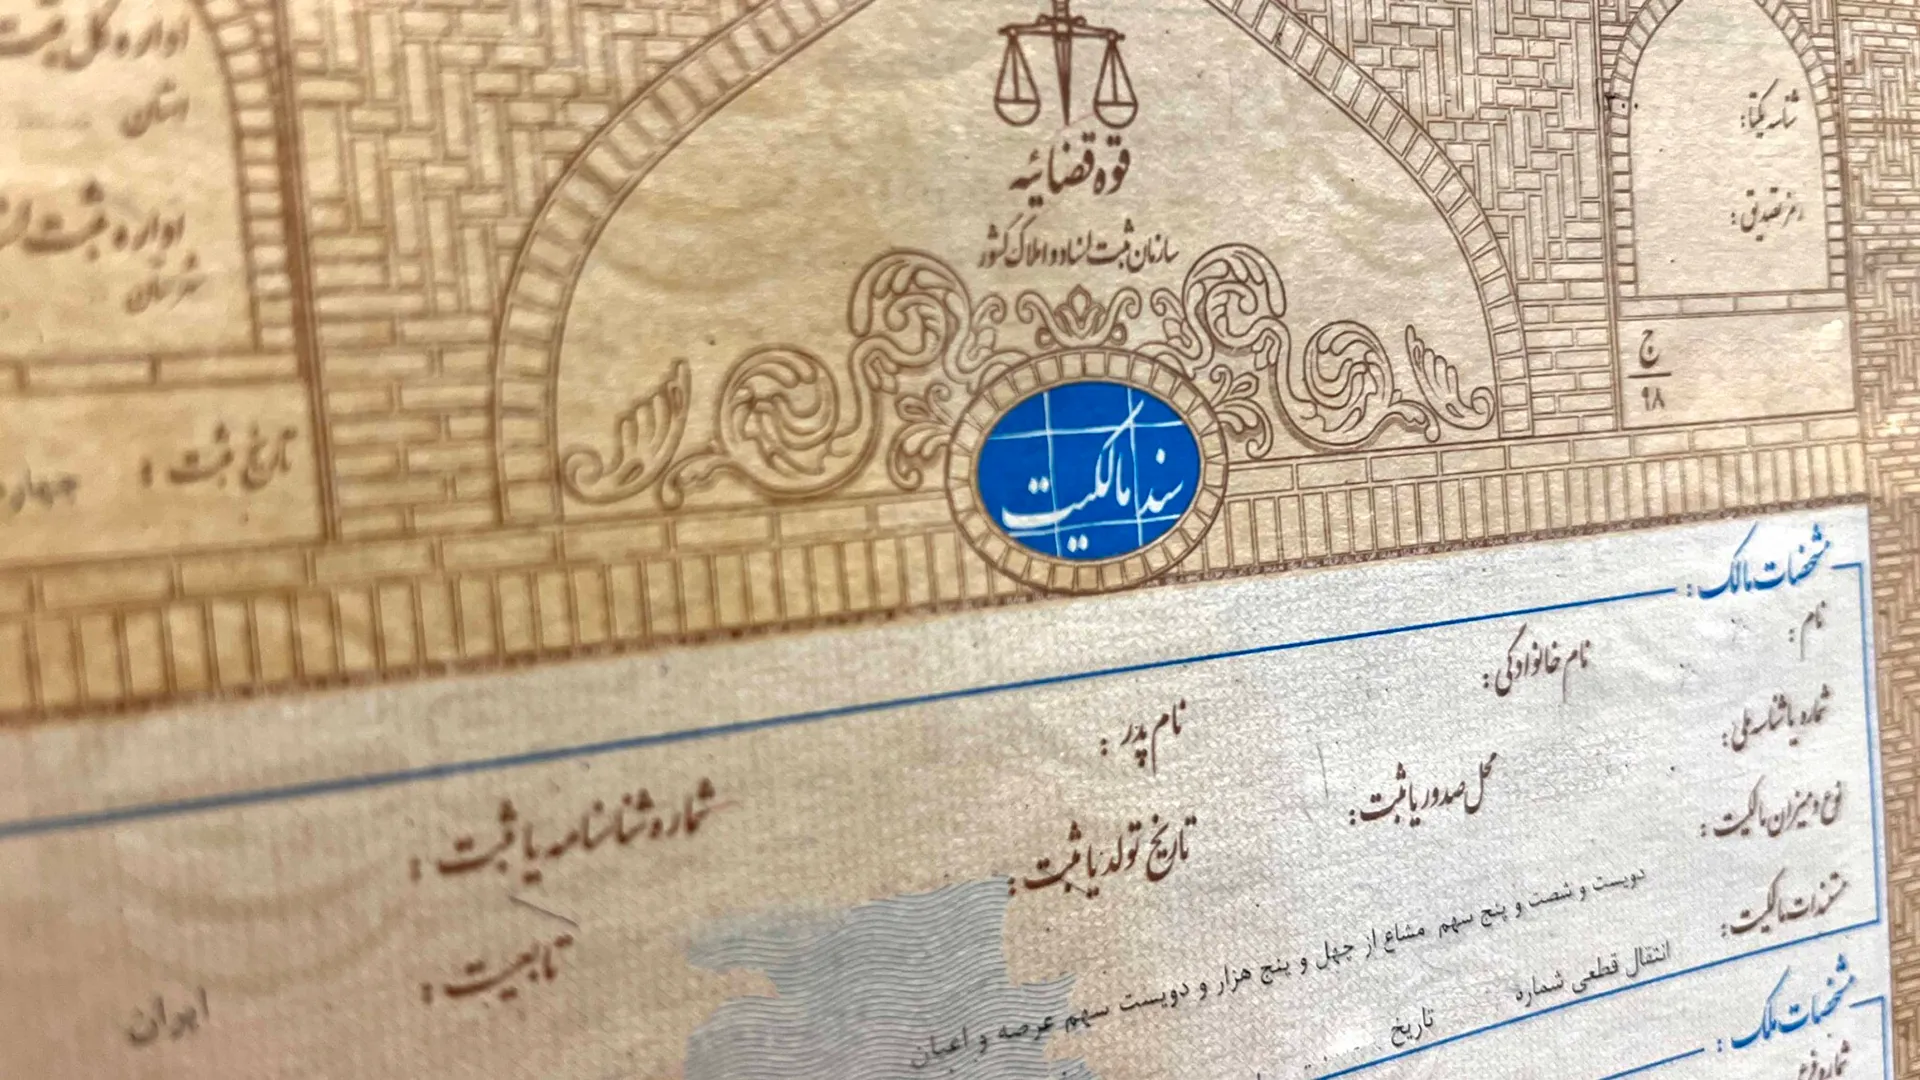 قوه قضائیه
سازمان ثبت اسناد و املاک کشور
سند مالکیت
شناسه یکتا:
رمز تصدیق:
ج
۹۸
اداره کل ثبت
استان
اداره ثبت
شهرستان
تاریخ ثبت :
مشخصات مالک :
نام :
نام خانوادگی :
نام پدر :
شماره شناسنامه یا ثبت :
شماره یا شناسه ملی :
محل صدور یا ثبت :
تاریخ تولد یا ثبت :
تابعیت :
ایران
نوع و میزان مالکیت :
دویست و شصت و پنج سهم مشاع از چهل و پنج هزار و دویست سهم عرصه و اعیان
مستندات مالکیت :
انتقال قطعی شماره
تاریخ
مشخصات ملک :